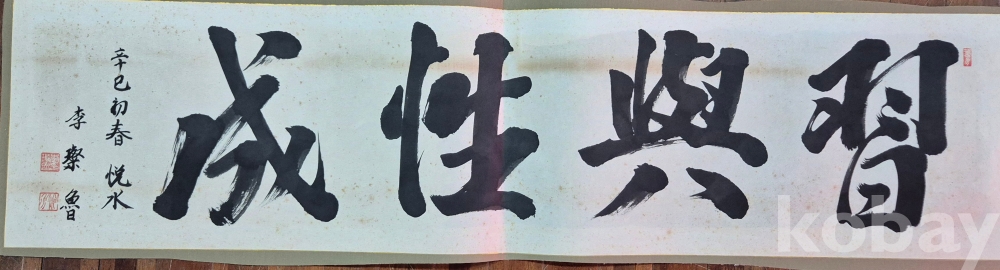 習與性成
辛巳初春 悦水
李粲魯
kobay